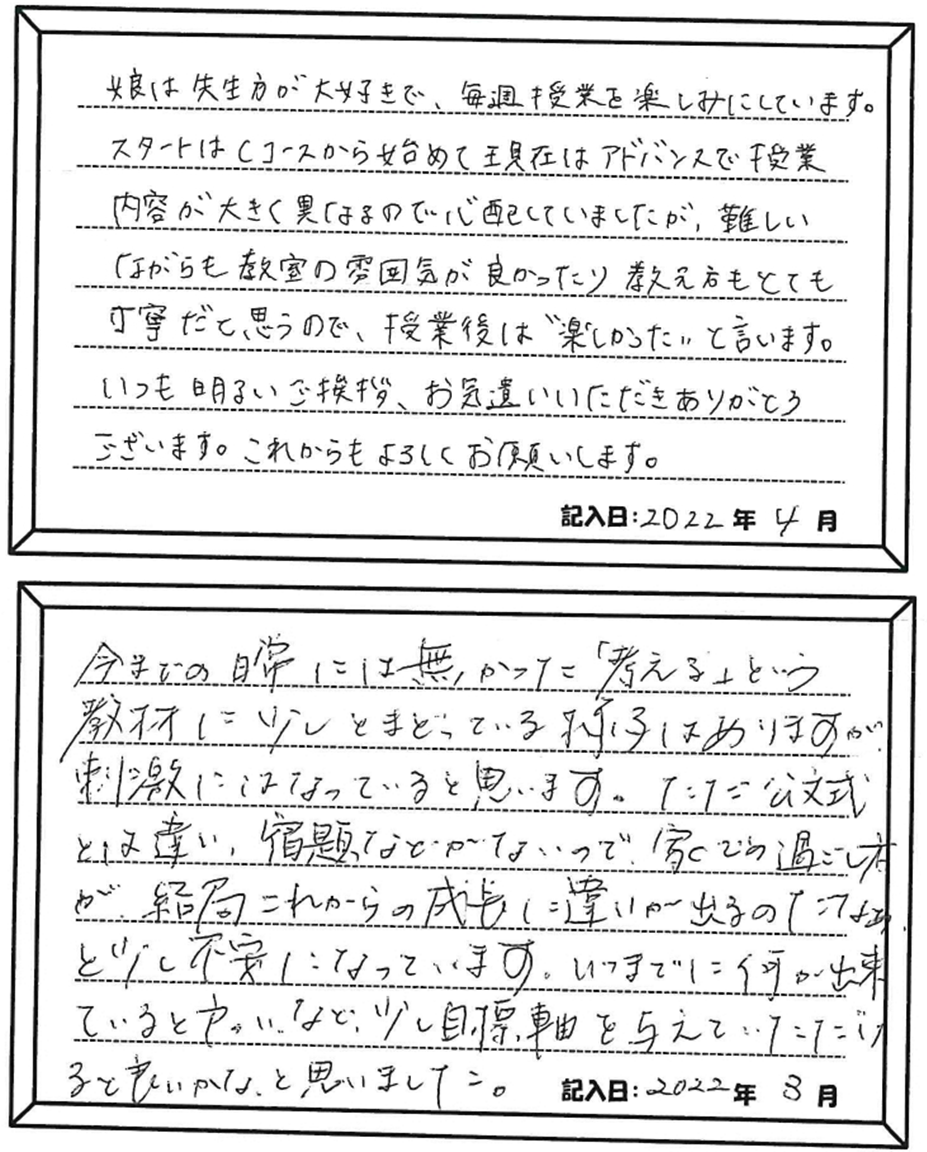 娘は先生方が大好きで、毎週授業を楽しみにしています。
スタートはCコースから始めて現在はアドバンスで授業
内容が大きく異なるので心配していましたが、難しい
ながらも教室の雰囲気が良かったり教え方もとても
丁寧だと思うので、授業後は“楽しかった”と言います。
いつも明るいご挨拶、お気遣いいただきありがとう
ございます。これからもよろしくお願いします。
記入日:2022年4月
今までの日常には無かった「考える」という
教材に少しとまどっている様子はありますが、
刺激にはなっていると思います。ただ公文式
とは違い、宿題などがないので、家での過ごし方
が、結局これからの成長に違いが出るのだなぁ、
と少し不安になっています。いつまでに何が出来
ているとよい、など、少し目標軸を与えていただけ
ると良いかな、と思いました。
記入日:2022年3月